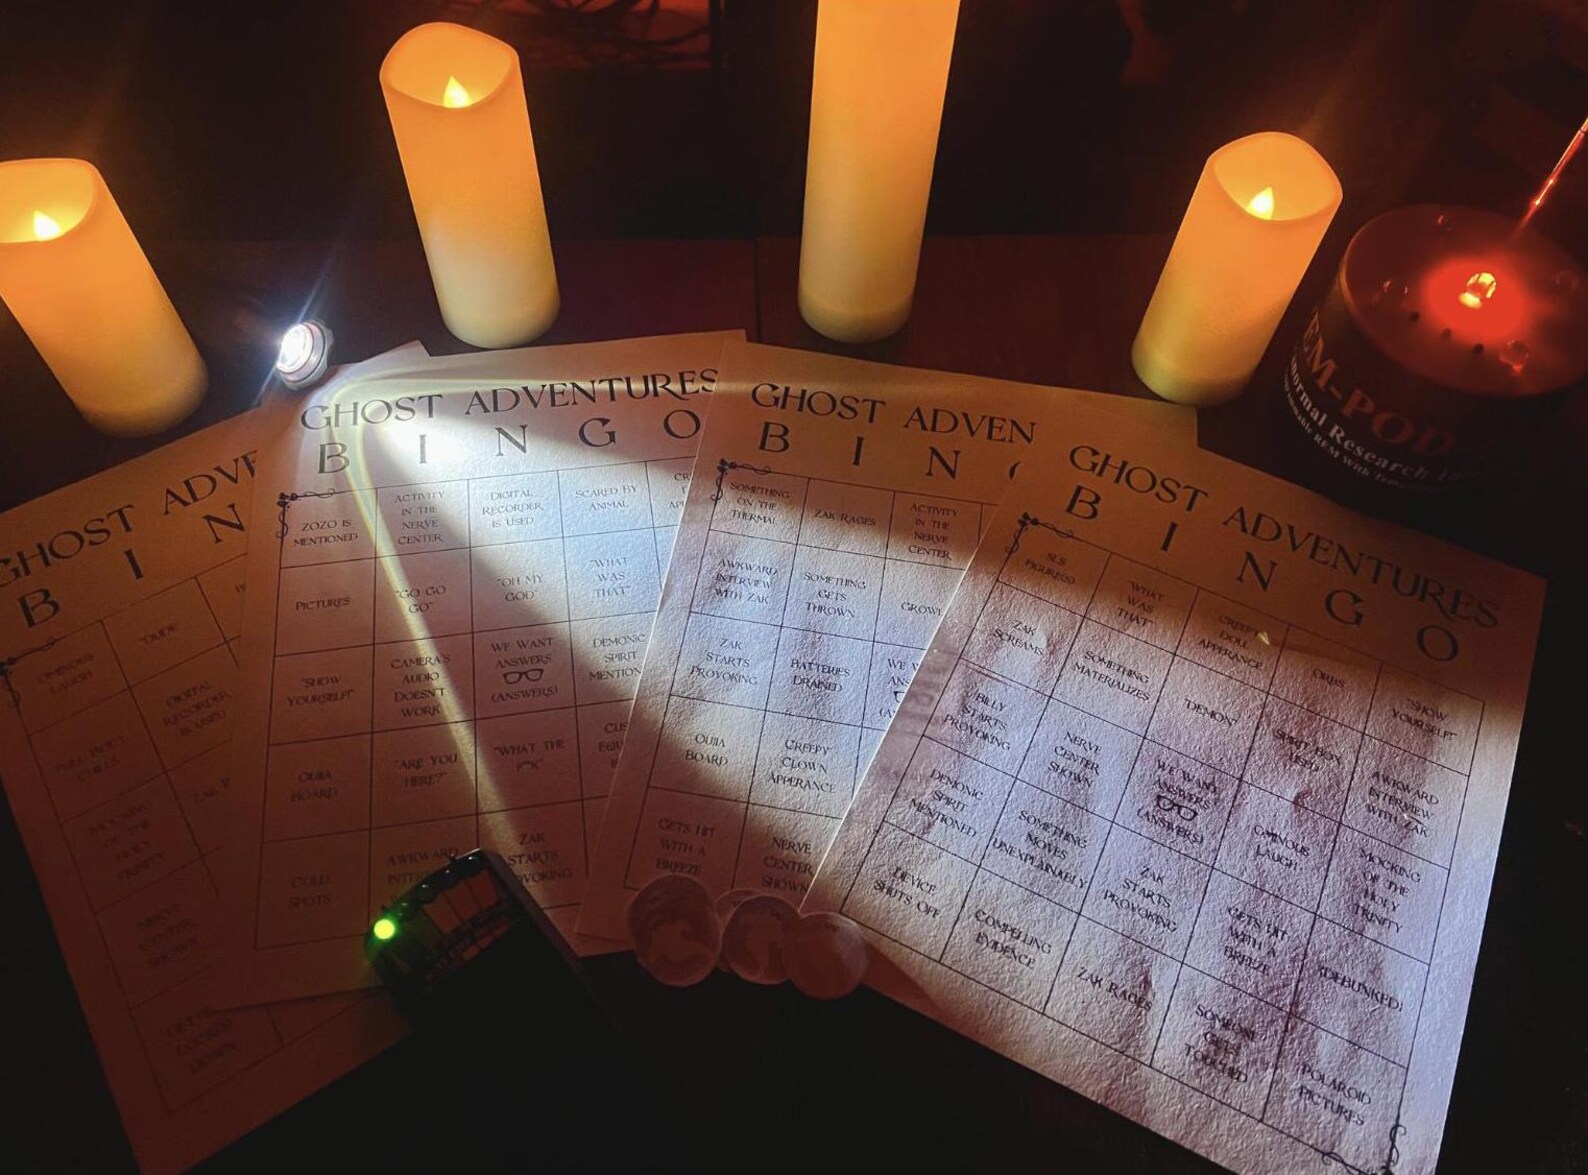 GHOST ADVE
B I N
OMINOUS
LAUGH
"DUDE"
DIGITAL
RECORDER
IS USED
CHILLS
MOCKING
OF THE
HOLY
TRINITY
NERVE
CENTER
SHOWN
DOWN
GHOST ADVENTURES
B I N G O
ZOZO IS
MENTIONED
ACTIVITY
IN THE
NERVE
CENTER
DIGITAL
RECORDER
IS USED
SCARED BY
ANIMAL
CR
AP
PICTURES
"GO GO
GO"
"OH MY
GOD"
"WHAT
WAS
THAT"
"SHOW
YOURSELF!"
CAMERA'S
AUDIO
DOESN'T
WORK
WE WANT
ANSWERS
(ANSWERS)
DEMONIC
SPIRIT
MENTION
OUIJA
BOARD
"ARE YOU
HERE?"
"WHAT THE
F**K"
CUS
EQU
COLD
SPOTS
AWKWARD
INTER
ZAK
STARTS
VOKING
GHOST ADVEN
B I N
SOMETHING
ON THE
THERMAL
ZAK RAGES
ACTIVITY
IN THE
NERVE
CENTER
AWKWARD
INTERVIEW
WITH ZAK
SOMETHING
GETS
THROWN
GROWL
ZAK
STARTS
PROVOKING
BATTERIES
DRAINED
WE W
ANS
(A
OUIJA
BOARD
CREEPY
CLOWN
APPERANCE
GETS HIT
WITH A
BREEZE
NERVE
CENTER
SHOWN
GHOST ADVENTURES
B I N G O
SLS
FIGURE(S)
"WHAT
WAS
THAT"
CREEPY
DOLL
APPERANCE
ORBS
"SHOW
YOURSELF!"
ZAK
SCREAMS
SOMETHING
MATERIALIZES
"DEMON"
SPIRIT BOX
USED
AWKWARD
INTERVIEW
WITH ZAK
BILLY
STARTS
PROVOKING
NERVE
CENTER
SHOWN
WE WANT
ANSWERS
(ANSWERS)
OMINOUS
LAUGH
MOCKING
OF THE
HOLY
TRINITY
DEMONIC
SPIRIT
MENTIONED
SOMETHING
MOVES
UNEXPLAINABLY
ZAK
STARTS
PROVOKING
GETS HIT
WITH A
BREEZE
(DEBUNKED)
DEVICE
SHUTS OFF
COMPELLING
EVIDENCE
ZAK RAGES
SOMEONE
GETS
TOUCHED
POLAROID
PICTURES
EM-POD
ormal Research
REM With